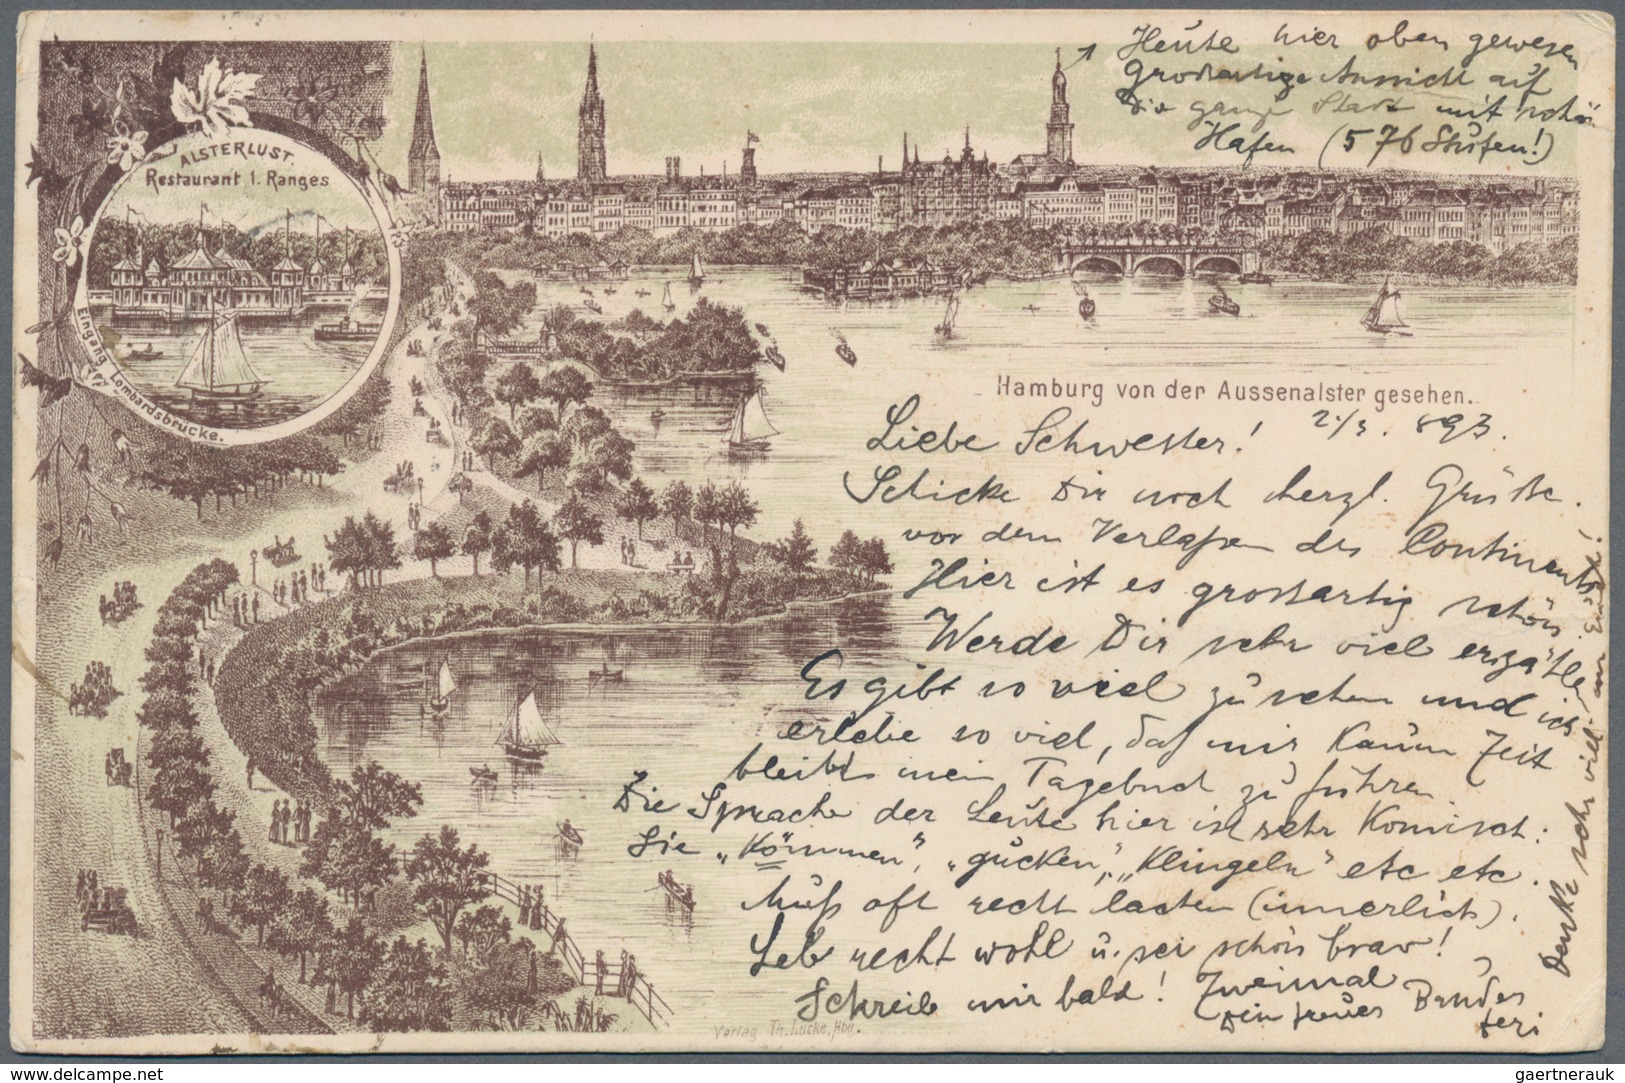 Heute hier oben gewesen
Grossartige Aussicht auf
die ganze Stadt mit schön
Hafen (576 Stufen!)
ALSTERLUST.
Restaurant 1. Ranges
Eingang Lombardsbrücke.
Hamburg von der Aussenalster gesehen.
Liebe Schwester! 2./3. 893.
Schicke Dir noch herzl. Grüße.
vor dem Verlaßen des Continents
Hier ist es grossartig schön
Werde Dir sehr viel erzähle
Es gibt so viel zu sehen und ich
erlebe so viel, daß mir kaum Zeit
bleibt mein Tagebuch zu führen
Die Sprache der Leute hier ist sehr komisch:
Sie „kömmen", „gücken", „klingeln" etc etc.
Muß oft recht lachen (innerlich).
Leb recht wohl u. sei schön brav!
Schreib mir bald! Zweimal
Dein treues Bruder
feri
Denke sehr viel an Euch!
Verlag Th. Lücke, Hbg.
gaertnerauk
www.delcampe.net